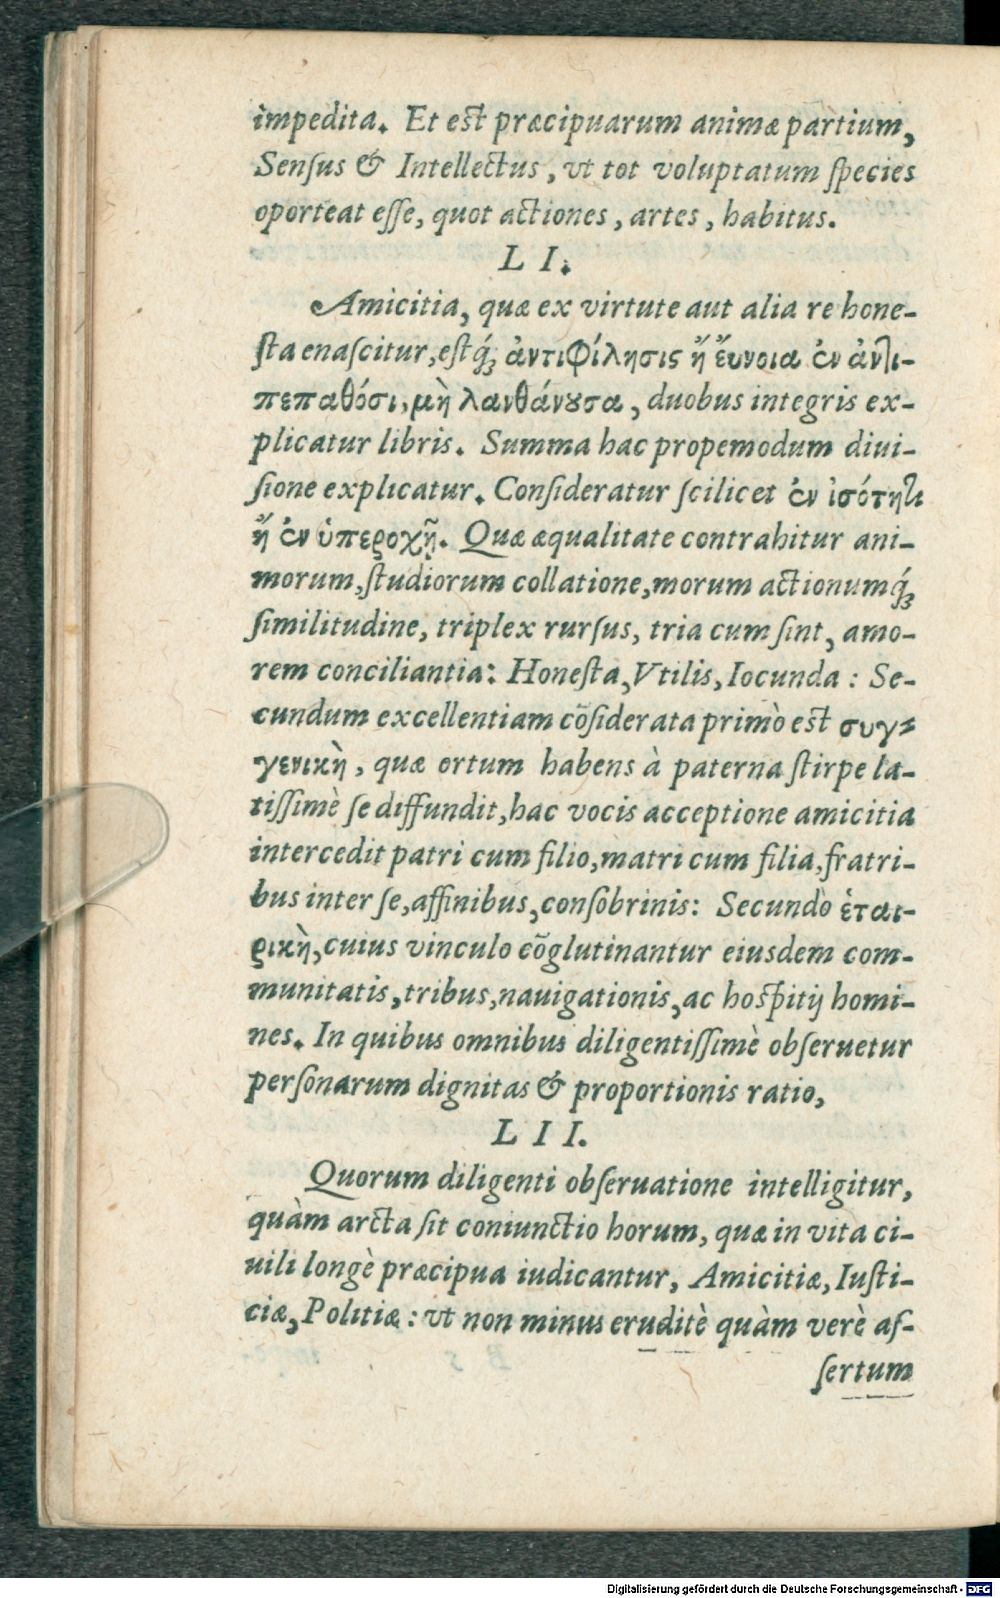 impedita. Et est præcipuarum animæ partium,
Senſus & Intellectus, vt tot voluptatum ſpecies
oporteat eſſe, quot actiones, artes, habitus.
L I.
Amicitia, quæ ex virtute aut alia re hone-
ſta enaſcitur, eſtq́; ἀντιφίλησις ἢ ἔυνοια ἐν ἀντι-
πεπαθόσι, μὴ λανθάνȣσα, duobus integris ex-
plicatur libris. Summa hac propemodum diui-
ſione explicatur. Conſideratur ſcilicet ἐν ἰσότητι
ἢ ἐν ὑπεροχῇ. Quæ æqualitate contrahitur ani-
morum, ſtudiorum collatione, morum actionumq́;
ſimilitudine, triplex rurſus, tria cum ſint, amo-
rem conciliantia: Honeſta, Vtilis, Iocunda: Se-
cundum excellentiam cõſiderata primò est συγ-
γενικὴ, quæ ortum habens à paterna ſtirpe la-
tiſſimè ſe diffundit, hac vocis acceptione amicitia
intercedit patri cum filio, matri cum filia, fratri-
bus inter ſe, affinibus, conſobrinis: Secundò ἑται-
ρικὴ, cuius vinculo cõglutinantur eiusdem com-
munitatis, tribus, nauigationis, ac hoſpitij homi-
nes. In quibus omnibus diligentiſſimè obſeruetur
perſonarum dignitas & proportionis ratio,
L I I.
Quorum diligenti obſeruatione intelligitur,
quàm arcta ſit coniunctio horum, quæ in vita ci-
uili longè præcipua iudicantur, Amicitiæ, Iuſti-
ciæ, Politiæ: vt non minus eruditè quàm verè aſ-
ſertum
Digitalisierung gefördert durch die Deutsche Forschungsgemeinschaft - DFG